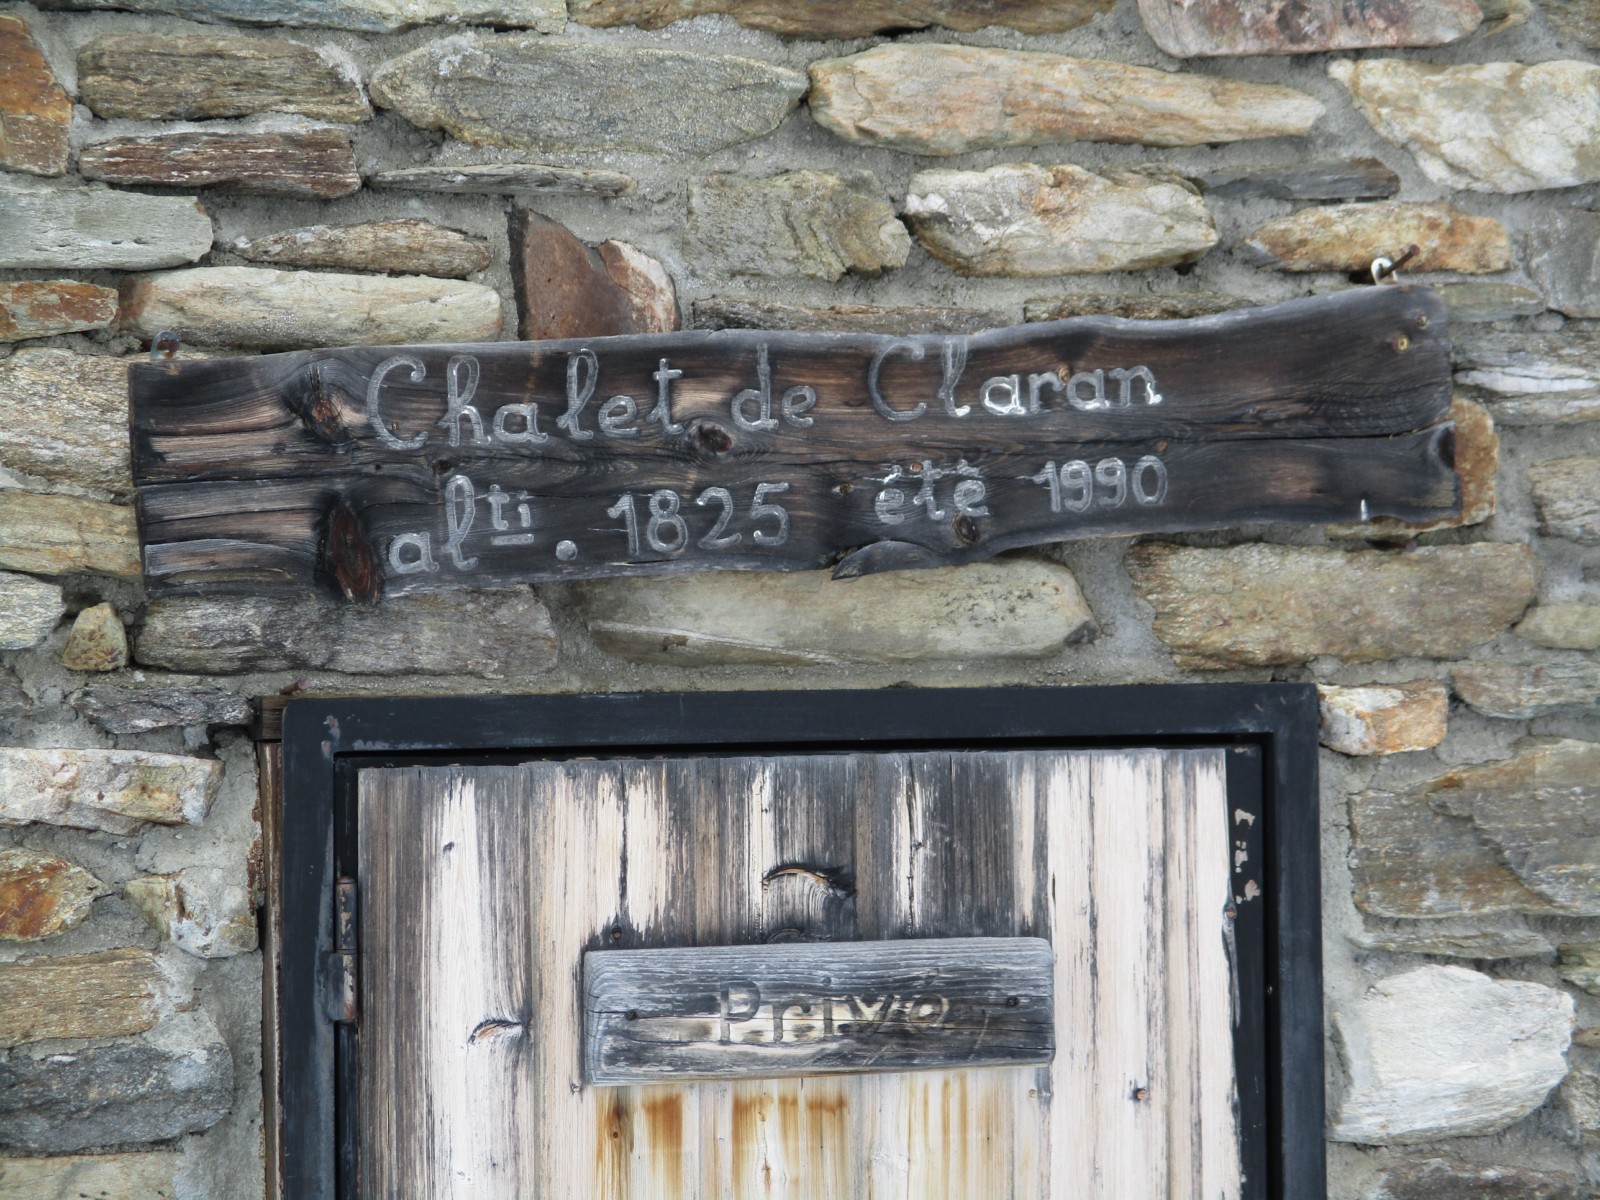 Chalet de Claran
alti. 1825 été 1990
Privo